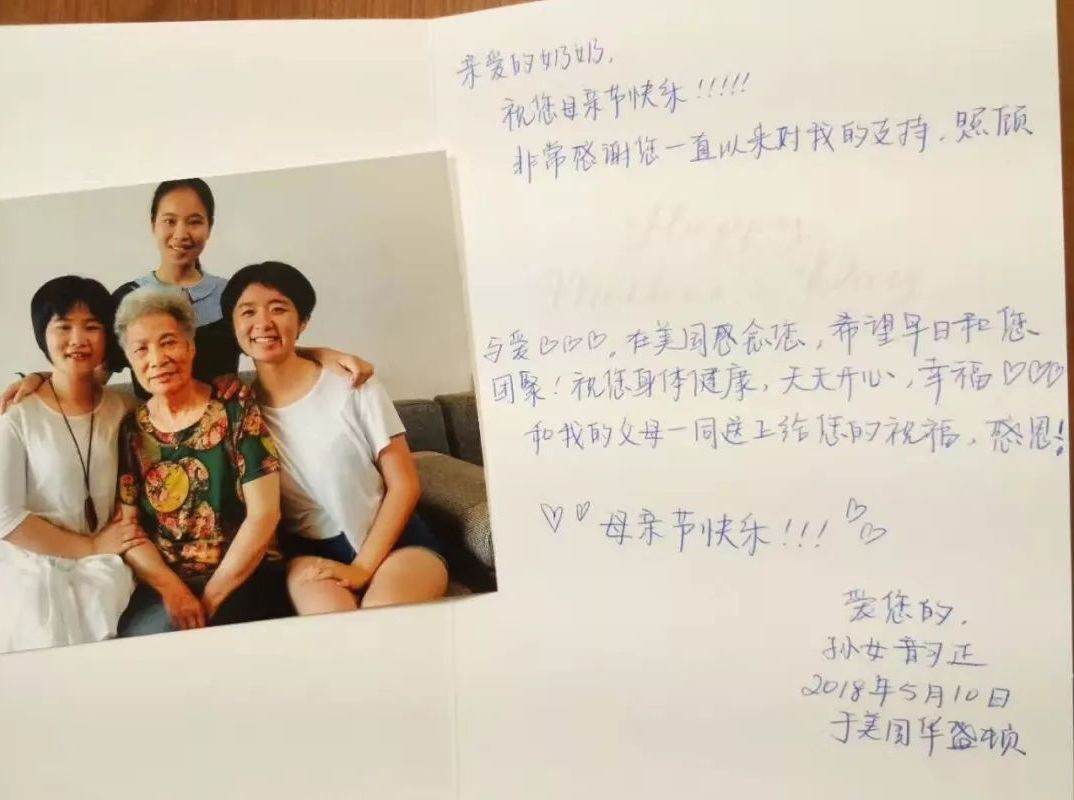 亲爱的奶奶，
祝您母亲节快乐！！！！！
非常感谢您一直以来对我的支持、照顾
Happy
Mother's Day
与爱♡♡♡，在美国感念您，希望早日和您
团聚！祝您身体健康，天天开心，幸福♡♡♡
和我的父母一同送上给您的祝福，感恩！
♡♡母亲节快乐！！！♡♡
爱您的，
孙女 正
2018年5月10日
于美国华盛顿